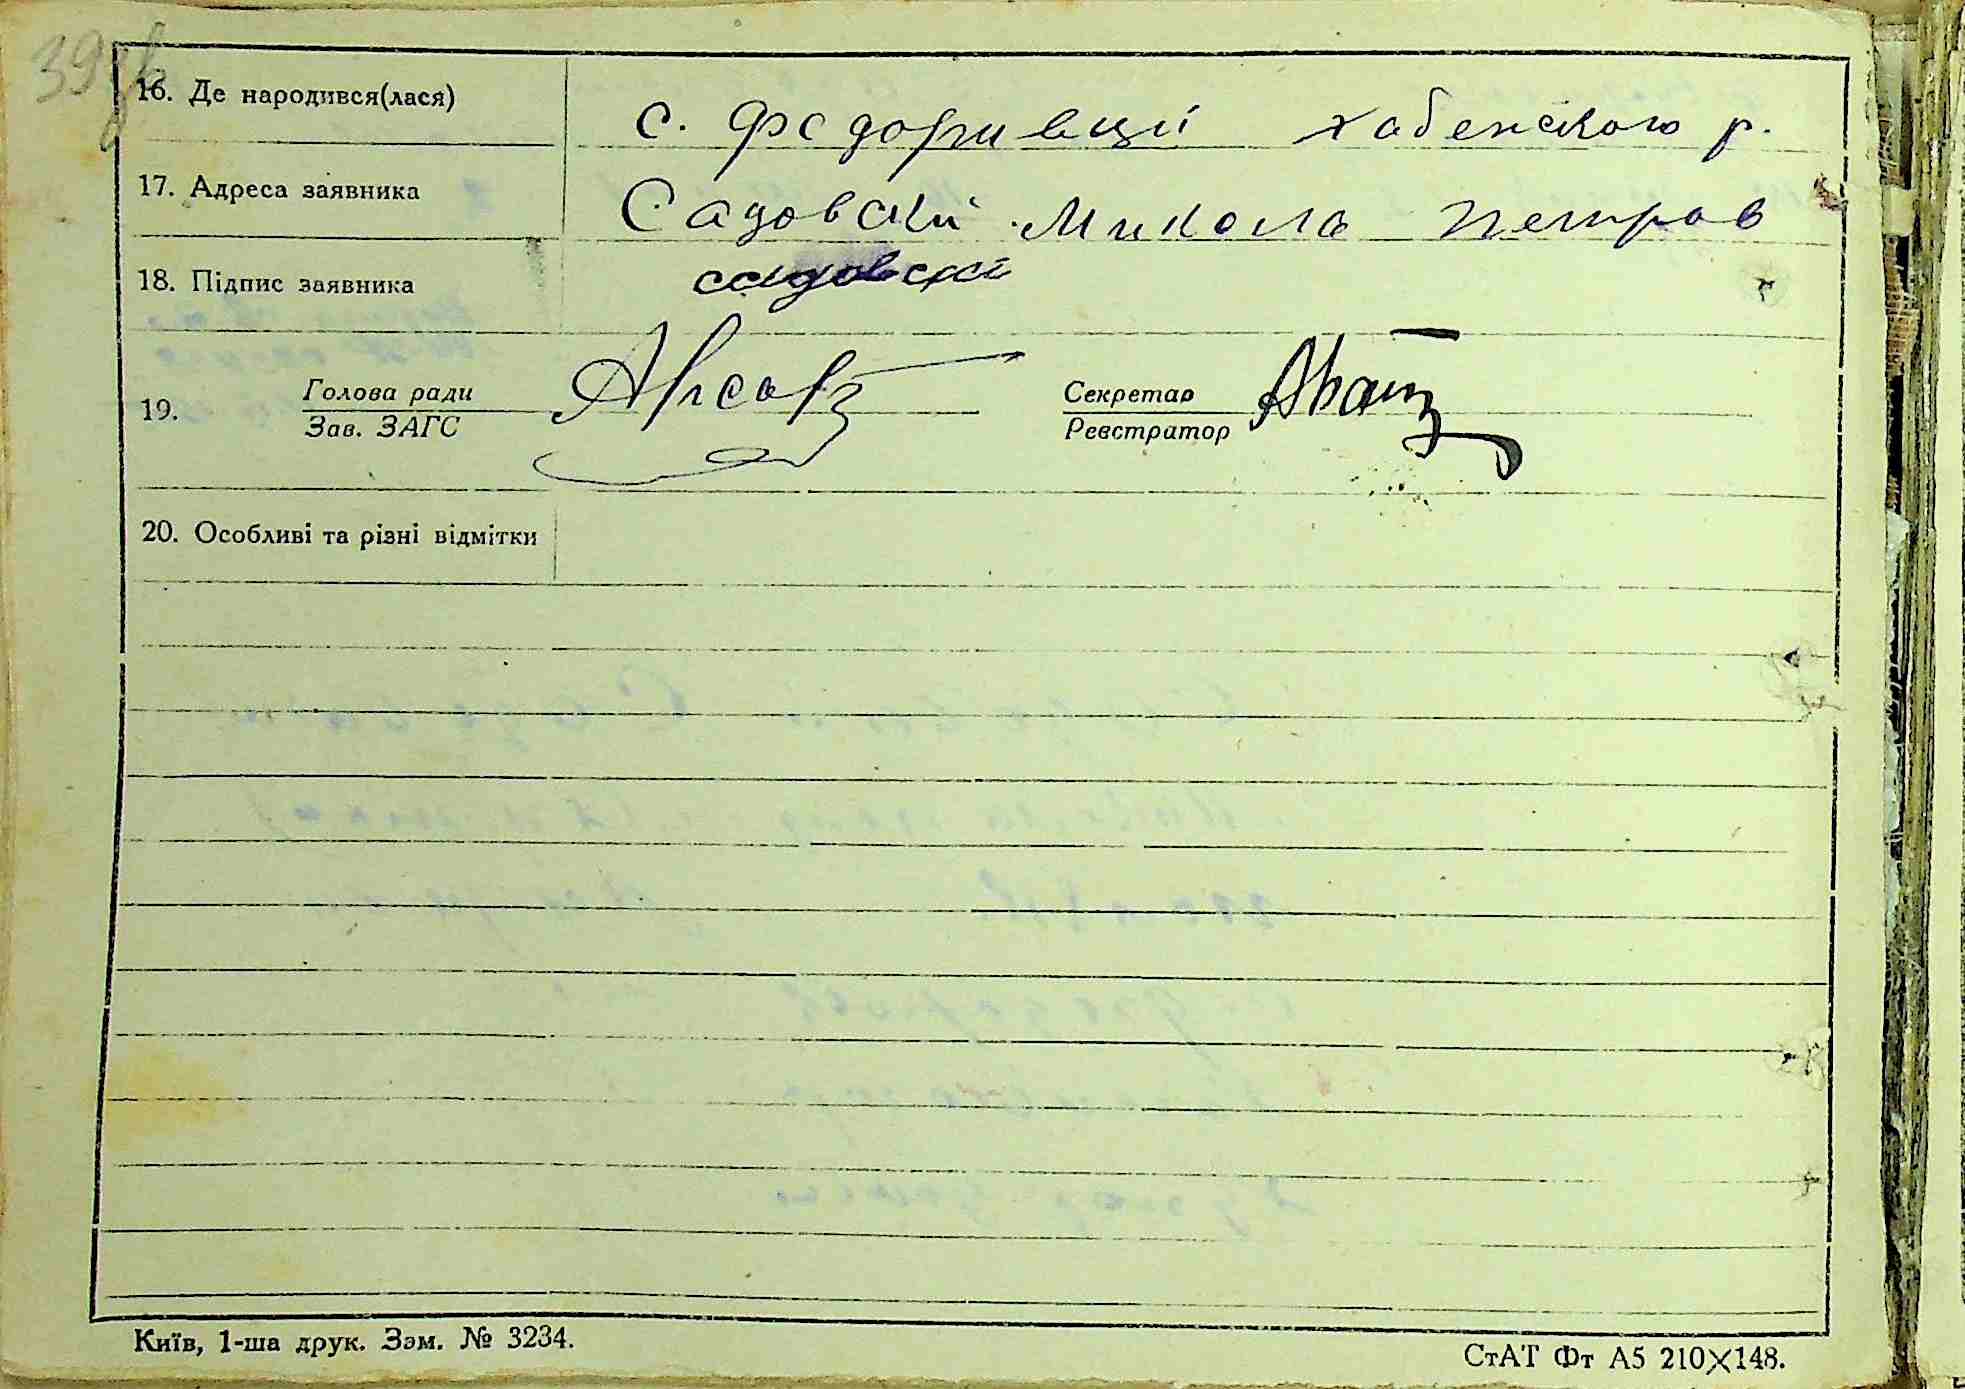 39зв
16. Де народився(лася) с. Федоривци хабенского р.
17. Адреса заявника Садовскй Микола Петров
18. Підпис заявника садовскй
19. Голова ради Секретар
Зав. ЗАГС Реєстратор
20. Особливі та різні відмітки
Київ, 1-ша друк. Зам. № 3234.
СтАТ Фт А5 210×148.